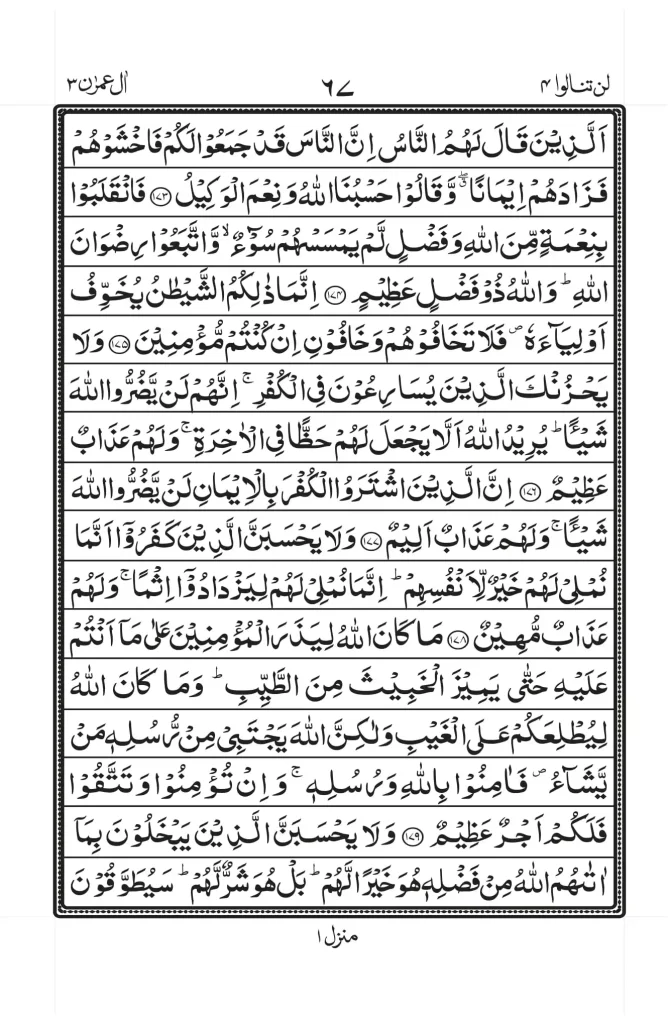 لن تنالوا ۴ ٦٧ اٰل عمرٰن ۳
اَلَّذِيْنَ قَالَ لَهُمُ النَّاسُ اِنَّ النَّاسَ قَدْ جَمَعُوْا لَكُمْ فَاخْشَوْهُمْ
فَزَادَهُمْ اِيْمَانًا ۖۗ وَّقَالُوْا حَسْبُنَا اللّٰهُ وَنِعْمَ الْوَكِيْلُ ﴿۱۷۳﴾ فَانْقَلَبُوْا
بِنِعْمَةٍ مِّنَ اللّٰهِ وَفَضْلٍ لَّمْ يَمْسَسْهُمْ سُوْٓءٌ ۙ وَّاتَّبَعُوْا رِضْوَانَ
اللّٰهِ ؕ وَاللّٰهُ ذُوْ فَضْلٍ عَظِيْمٍ ﴿۱۷۴﴾ اِنَّمَا ذٰلِكُمُ الشَّيْطٰنُ يُخَوِّفُ
اَوْلِيَآءَهٗ ۪ فَلَا تَخَافُوْهُمْ وَخَافُوْنِ اِنْ كُنْتُمْ مُّؤْمِنِيْنَ ﴿۱۷۵﴾ وَلَا
يَحْزُنْكَ الَّذِيْنَ يُسَارِعُوْنَ فِى الْكُفْرِ ۚ اِنَّهُمْ لَنْ يَّضُرُّوا اللّٰهَ
شَيْـًٔا ؕ يُرِيْدُ اللّٰهُ اَلَّا يَجْعَلَ لَهُمْ حَظًّا فِى الْاٰخِرَةِ ۚ وَلَهُمْ عَذَابٌ
عَظِيْمٌ ﴿۱۷۶﴾ اِنَّ الَّذِيْنَ اشْتَرَوُا الْكُفْرَ بِالْاِيْمَانِ لَنْ يَّضُرُّوا اللّٰهَ
شَيْـًٔا ۚ وَلَهُمْ عَذَابٌ اَلِيْمٌ ﴿۱۷۷﴾ وَلَا يَحْسَبَنَّ الَّذِيْنَ كَفَرُوْٓا اَنَّمَا
نُمْلِىْ لَهُمْ خَيْرٌ لِّاَنْفُسِهِمْ ؕ اِنَّمَا نُمْلِىْ لَهُمْ لِيَزْدَادُوْٓا اِثْمًا ۚ وَلَهُمْ
عَذَابٌ مُّهِيْنٌ ﴿۱۷۸﴾ مَا كَانَ اللّٰهُ لِيَذَرَ الْمُؤْمِنِيْنَ عَلٰى مَآ اَنْتُمْ
عَلَيْهِ حَتّٰى يَمِيْزَ الْخَبِيْثَ مِنَ الطَّيِّبِ ؕ وَمَا كَانَ اللّٰهُ
لِيُطْلِعَكُمْ عَلَى الْغَيْبِ وَلٰكِنَّ اللّٰهَ يَجْتَبِىْ مِنْ رُّسُلِهٖ مَنْ
يَّشَآءُ ۪ فَاٰمِنُوْا بِاللّٰهِ وَرُسُلِهٖ ۚ وَاِنْ تُؤْمِنُوْا وَتَتَّقُوْا
فَلَكُمْ اَجْرٌ عَظِيْمٌ ﴿۱۷۹﴾ وَلَا يَحْسَبَنَّ الَّذِيْنَ يَبْخَلُوْنَ بِمَآ
اٰتٰىهُمُ اللّٰهُ مِنْ فَضْلِهٖ هُوَ خَيْرًا لَّهُمْ ؕ بَلْ هُوَ شَرٌّ لَّهُمْ ؕ سَيُطَوَّقُوْنَ
منزل ۱